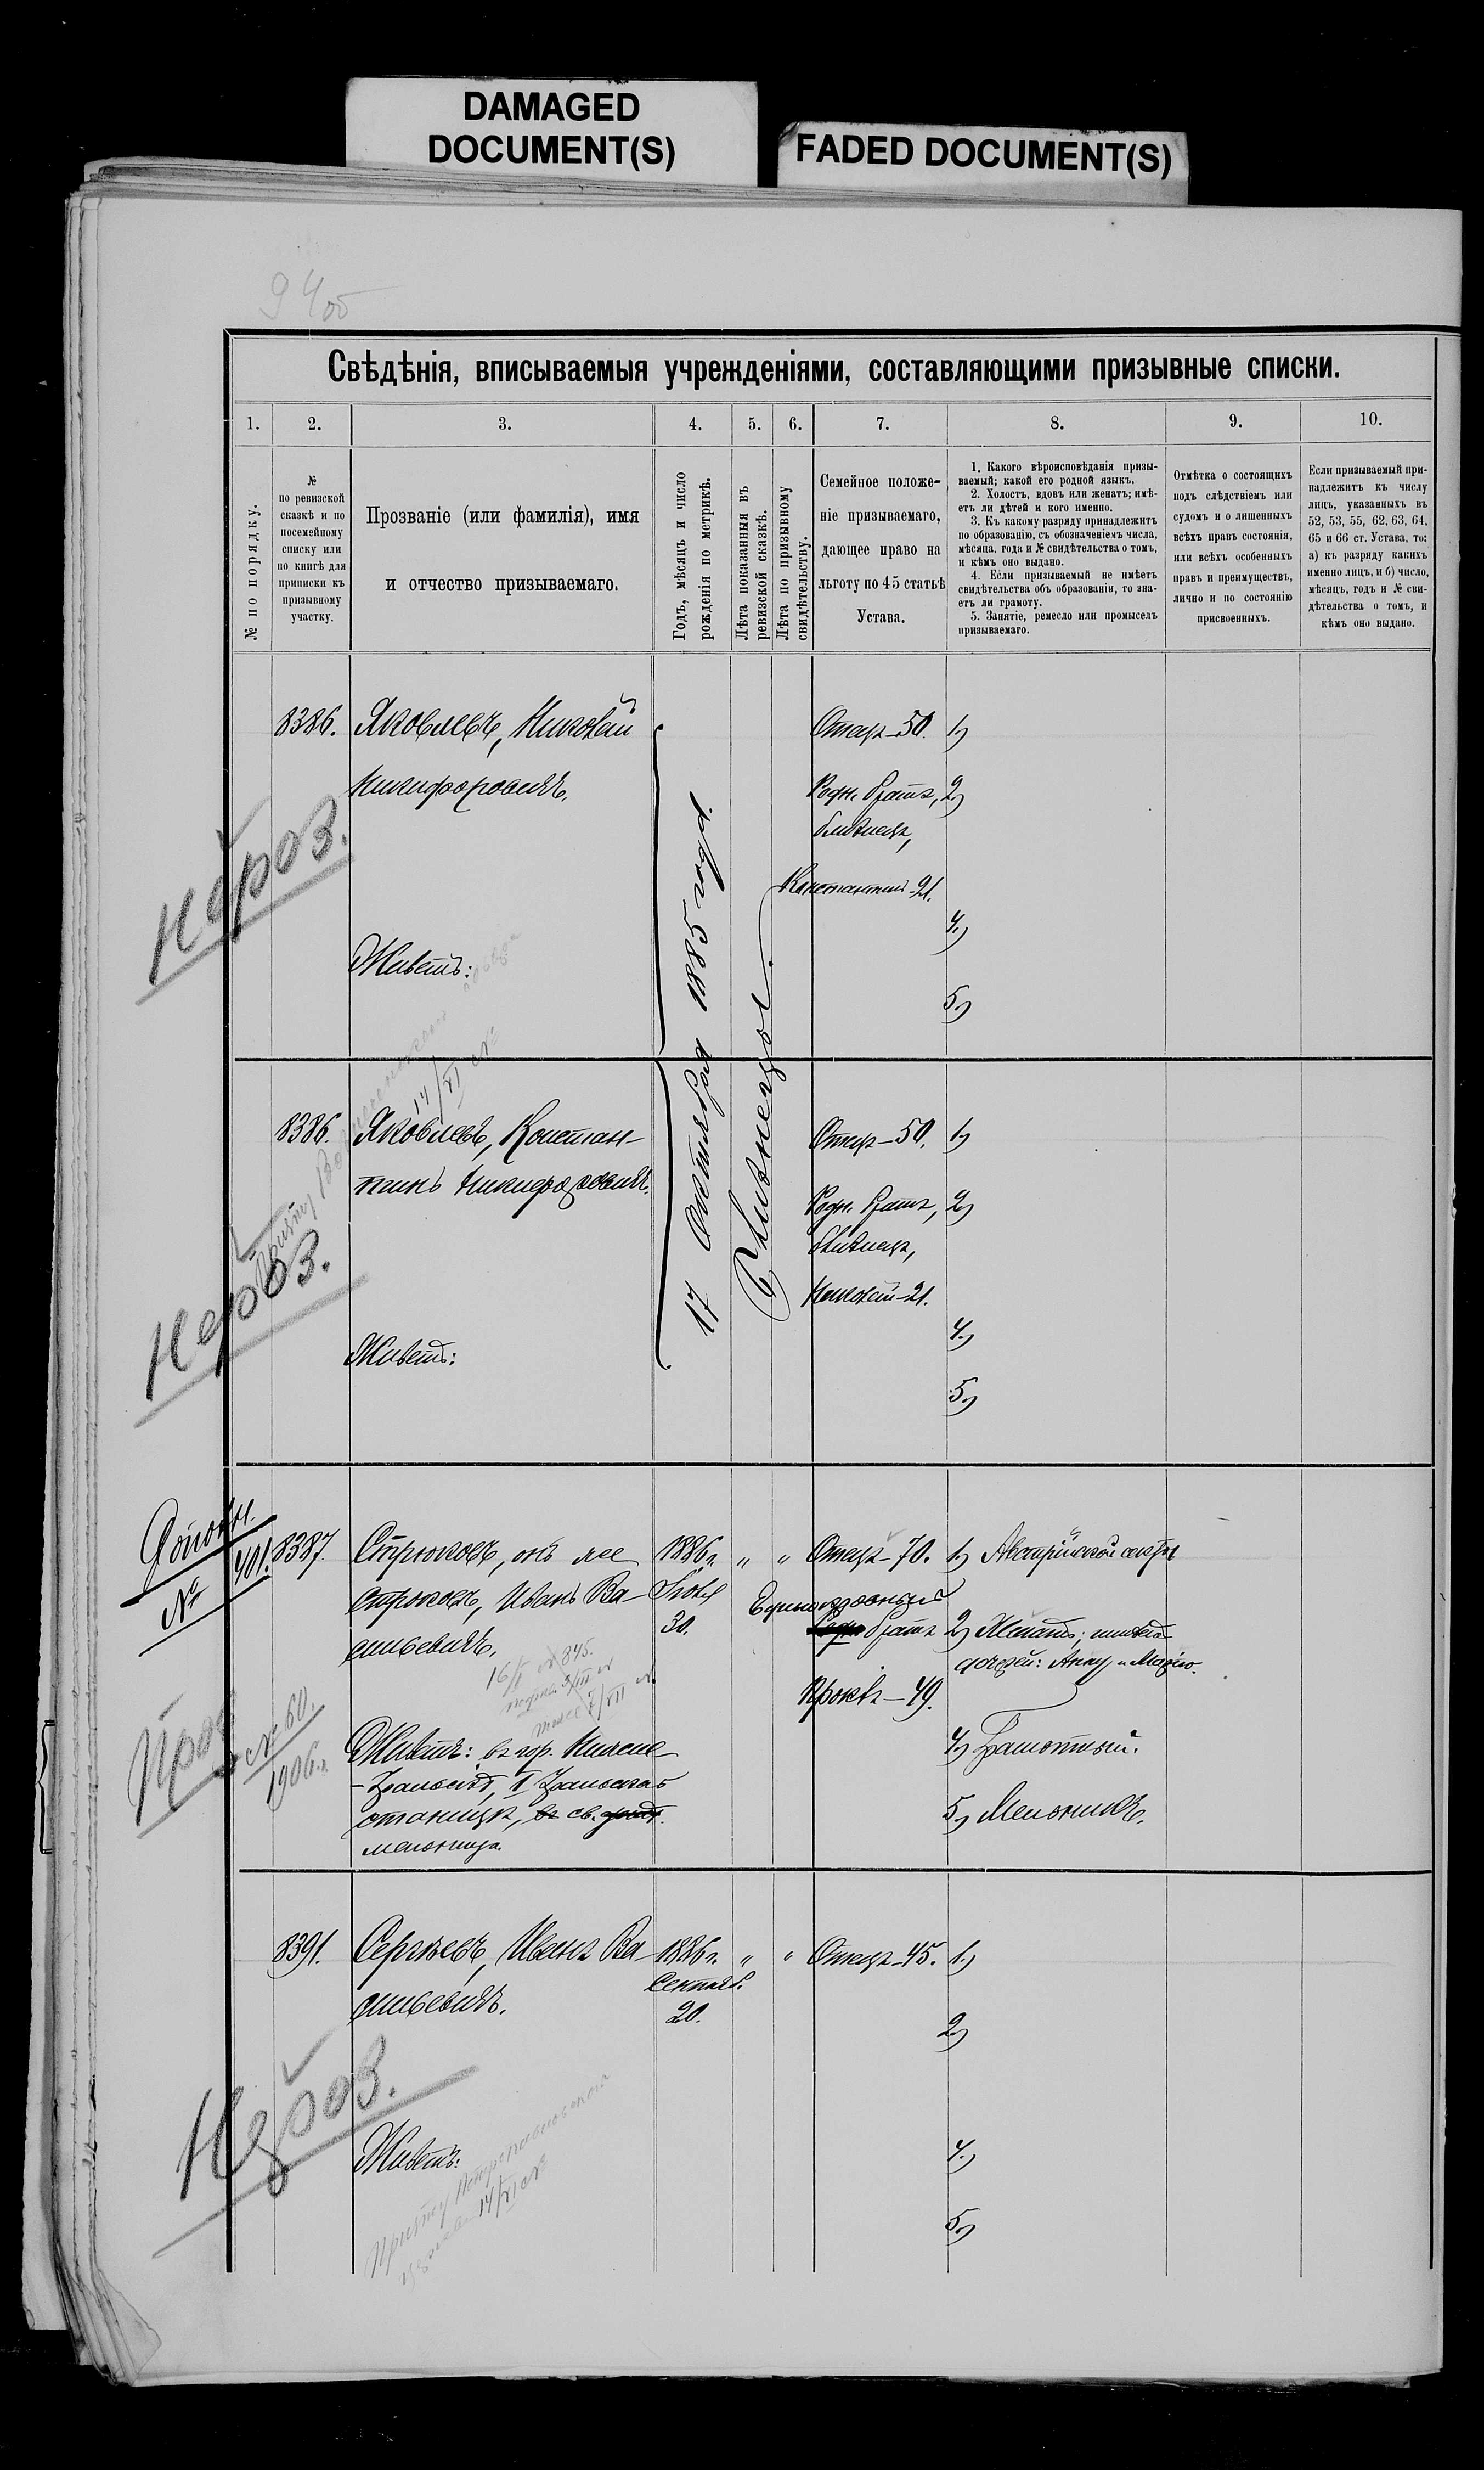 DAMAGED
DOCUMENT(S)
FADED DOCUMENT(S)
Свѣдѣнія, вписываемыя учрежденіями, составляющими призывные списки.
1.
2.
3.
4.
5.
6.
7.
8.
9.
10.
№ по порядку.
№
по ревизской
сказкѣ и по
посемейному
списку или
по книгѣ для
приписки къ
призывному
участку.
Прозваніе (или фамилія), имя
и отчество призываемаго.
Годъ, мѣсяцъ и число
рожденія по метрикѣ.
Лѣта показанныя въ
ревизской сказкѣ.
Лѣта по призывному
свидѣтельству.
Семейное положе-
ніе призываемаго,
дающее право на
льготу по 45 статьѣ
Устава.
1. Какого вѣроисповѣданія призы-
ваемый; какой его родной языкъ.
2. Холостъ, вдовъ или женатъ; имѣ-
етъ ли дѣтей и кого именно.
3. Къ какому разряду принадлежитъ
по образованію, съ обозначеніемъ числа,
мѣсяца, года и № свидѣтельства о томъ,
и кѣмъ оно выдано.
4. Если призываемый не имѣетъ
свидѣтельства объ образованіи, то зна-
етъ ли грамоту.
5. Занятіе, ремесло или промыселъ
призываемаго.
Отмѣтка о состоящихъ
подъ слѣдствіемъ или
судомъ и о лишенныхъ
всѣхъ правъ состоянія,
или всѣхъ особенныхъ
правъ и преимуществъ,
лично и по состоянію
присвоенныхъ.
Если призываемый при-
надлежитъ къ числу
лицъ, указанныхъ въ
52, 53, 55, 62, 63, 64,
65 и 66 ст. Устава, то:
а) къ разряду какихъ
именно лицъ, и б) число,
мѣсяцъ, годъ и № сви-
дѣтельства о томъ, и
кѣмъ оно выдано.
8386.
Яковлевъ, Николай
Никифоровичъ.
Живетъ:
17 Октября 1885 года.
Близнецы.
Отецъ-50.
Родн. братъ,
близнецъ,
Константинъ-21.
1)
2)
4)
5)
нероз.
8386.
Яковлевъ, Констан-
тинъ Никифоровичъ.
Живетъ:
14/XI №
Отецъ-50.
Родн. братъ,
близнецъ,
Николай-21.
1)
2)
4)
5)
Нероз.
Дополн.
№ 401.
8387.
Стрюковъ, онъ же
Строковъ, Иванъ Ва-
сильевичъ.
16/I № 845.
Живетъ: въ гор. Нижне-
-Уральскѣ, I Уральская
станица, въ св.
мельница.
1886 г.
Ноябр
30.
„ „
Отецъ-70.
Единокровный
братъ
Проквъ-49.
1) Австрійской секты
2) Женатъ; имѣетъ
дочерей: Анну и Марію.
4) Грамотный.
5) Мельникъ.
№ 60.
1906 г.
8391.
Сергѣевъ, Иванъ Ва-
сильевичъ.
Живетъ:
1886 г.
Сентяб.
20.
„ „
Отецъ-45.
1)
2)
4)
5)
Нероз.
Причту Петропавловской
14/XI №